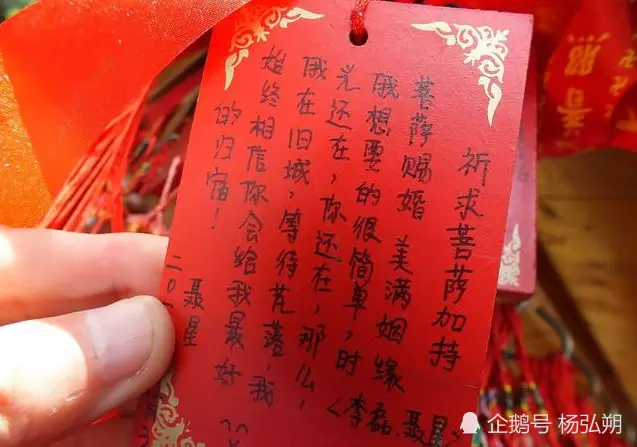 祈求菩萨加持
菩萨赐婚 美满姻缘
〈李磊.聂星
俄想要的很简单,时
光还在,你还在,那么,
俄在旧城,等待花落,我
始终相信你会给我最好
的归宿!
聂星
二0
企鹅号 杨弘朔